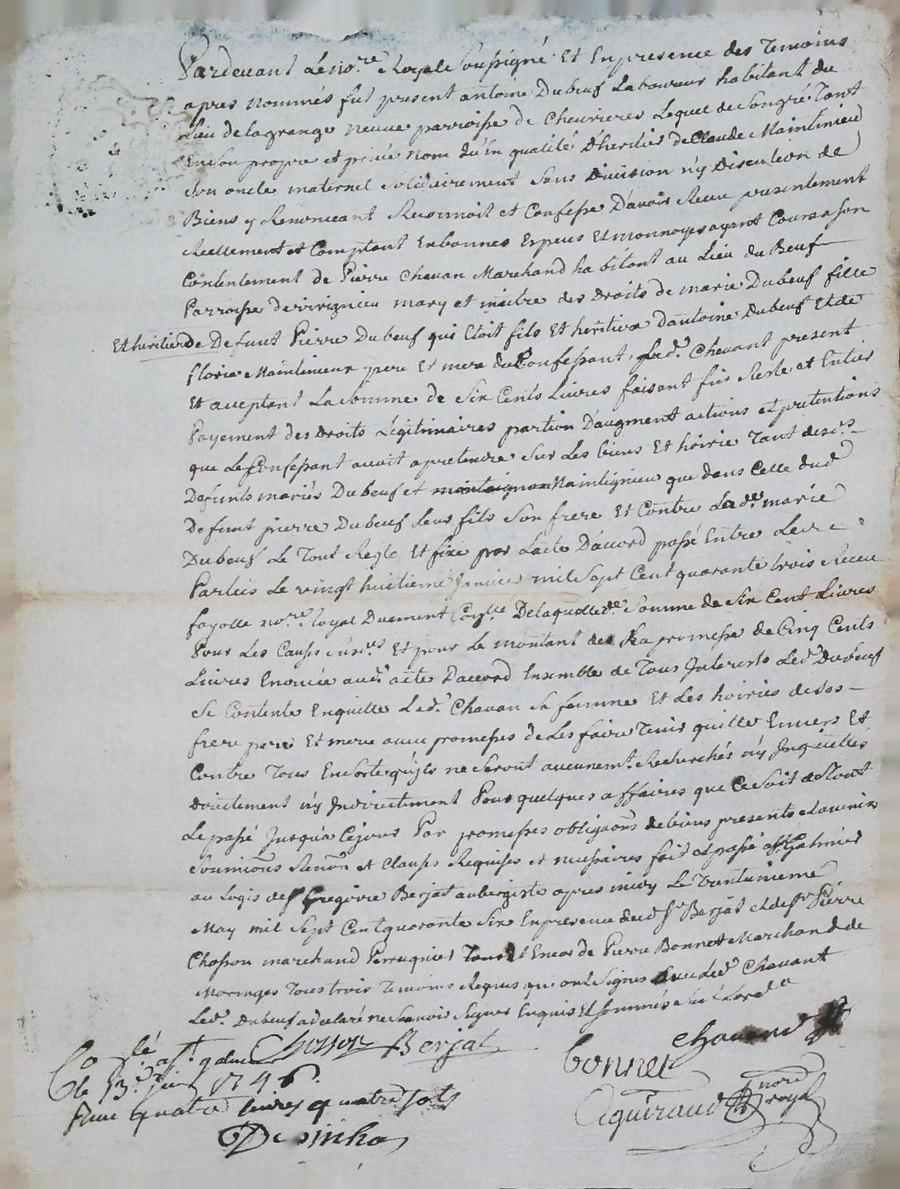 Pardevant Le no.re Royal Soussigné Et En presence des Temoins
apres nommés fut present antoine Dubeuf Laboureur habitant du
Lieu delagrange neuve parroisse de Chevrieres Lequel de Son gré Tant
En Son propre et privé nom qu'en qualité D'heritier de Claude Maintinieu
Son oncle maternel Solidairement Sans Division n'y Discution de
Biens y Renonceant Reconnoit et Confesse D'avoir Receu presentement
Reellement et Comptant En bonnes Especes Et monnoyes ayant Cours a Son
Contentement de Pierre Chavan Marchand habitant au Lieu du Beuf
Parroisse de virignieu mary et maitre des Droits de marie Dubeuf fille
Et heritiere de Defunt Pierre Dubeuf qui Etoit fils Et heritier D'antoine Dubeuf Et de
florie Maintinieu pere Et mere du Confessant, Led.t Chavant present
Et acceptant La Somme de Six Cents Livres faisant fins Reste et Entier
Payement des Droits Légitimaires partion D'augment actions et pretentions
que Le Confessant avoit a pretendre Sur Les biens Et hoirie Tant desd.s
Defunts mariés Dubeuf et Maintignieu que dans Celle dud.
Defunt pierre Dubeuf Leur fils Son frere Et Contre Lad.e marie
Dubeuf Le Tout Reglé Et fixé par L'acte D'accord passé Entre Les
Parties Le vingt huitieme Janvier mil Sept Cent quarante trois Receu
fayolle no.re Royal Duement De Laquelle Somme de Six Cent Livres
Pour Les Causes Susd.es Et pour Le montant de La promesse de Cinq Cents
Livres Enoncée aud. acte D'accord Ensemble de Tous Interests Led. Dubeuf
Se Contente En quitte Led. Chavan Sa femme Et Les hoiries de Ses
frere pere Et mere avec promesses de Les faire Tenir quitte Envers Et
Contre Tous En Sorte qu'ils ne Seront aucunem.t Recherchés n'y Inquiettés
Directement n'y Indirectement Pour quelques affaires que Ce Soit de Tout
Le passé Jusqu'a Ce jour Par promesses obligaons de biens presents et avenir
Soumissions Renon et Clauses Requises et necessaires fait et passé a St Galmier
au Logis de Gregoire Berjat aubergiste apres midy Le Trentunieme
May mil Sept Cent quarante Six En presence dud. Sr Berjat et de Sr Pierre
Chosson marchand Perruquier Et Encor de Pierre Bonnet Marchand de
Maringes Tous trois Temoins Requis qui ont Signés avec Led. Chavant
Led. Dubeuf a declaré ne Scavoir Signer Enquis Et Sommé
Chosson Berjat bonnet Chavand
Con.lé a St galm
le 13.e juin 1746.
quatre livres quatre sols
nore
royal